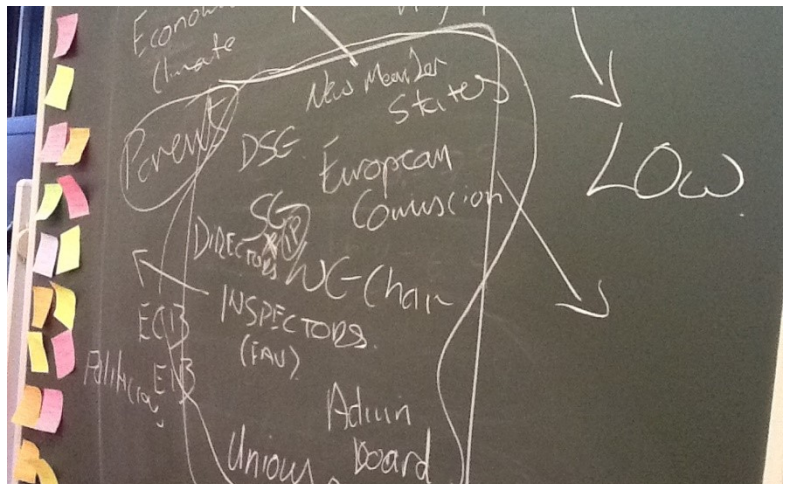 Economic
Climate
New Member
States
Parents
DSG
European
Commission
LOW
SG
DIRECTORS
WG-Chair
INSPECTORS
(FAV)
ECIB
Politicians
EIB
Admin
board
Unions